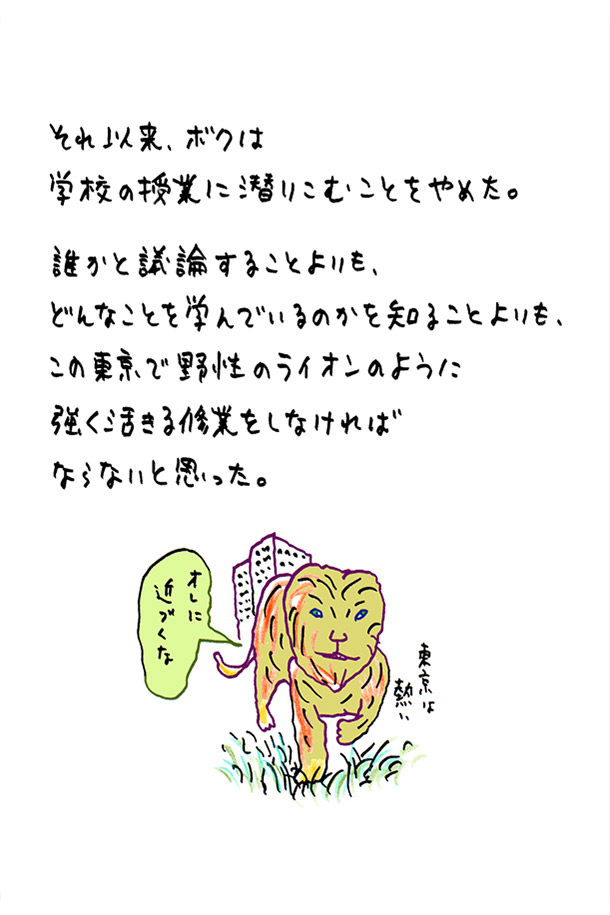 それ以来、ボクは
学校の授業に潜りこむことをやめた。
誰かと議論することよりも、
どんなことを学んでいるのかを知ることよりも、
この東京で野性のライオンのように
強く活きる修業をしなければ
ならないと思った。
オレに
近づくな
東京は
熱い